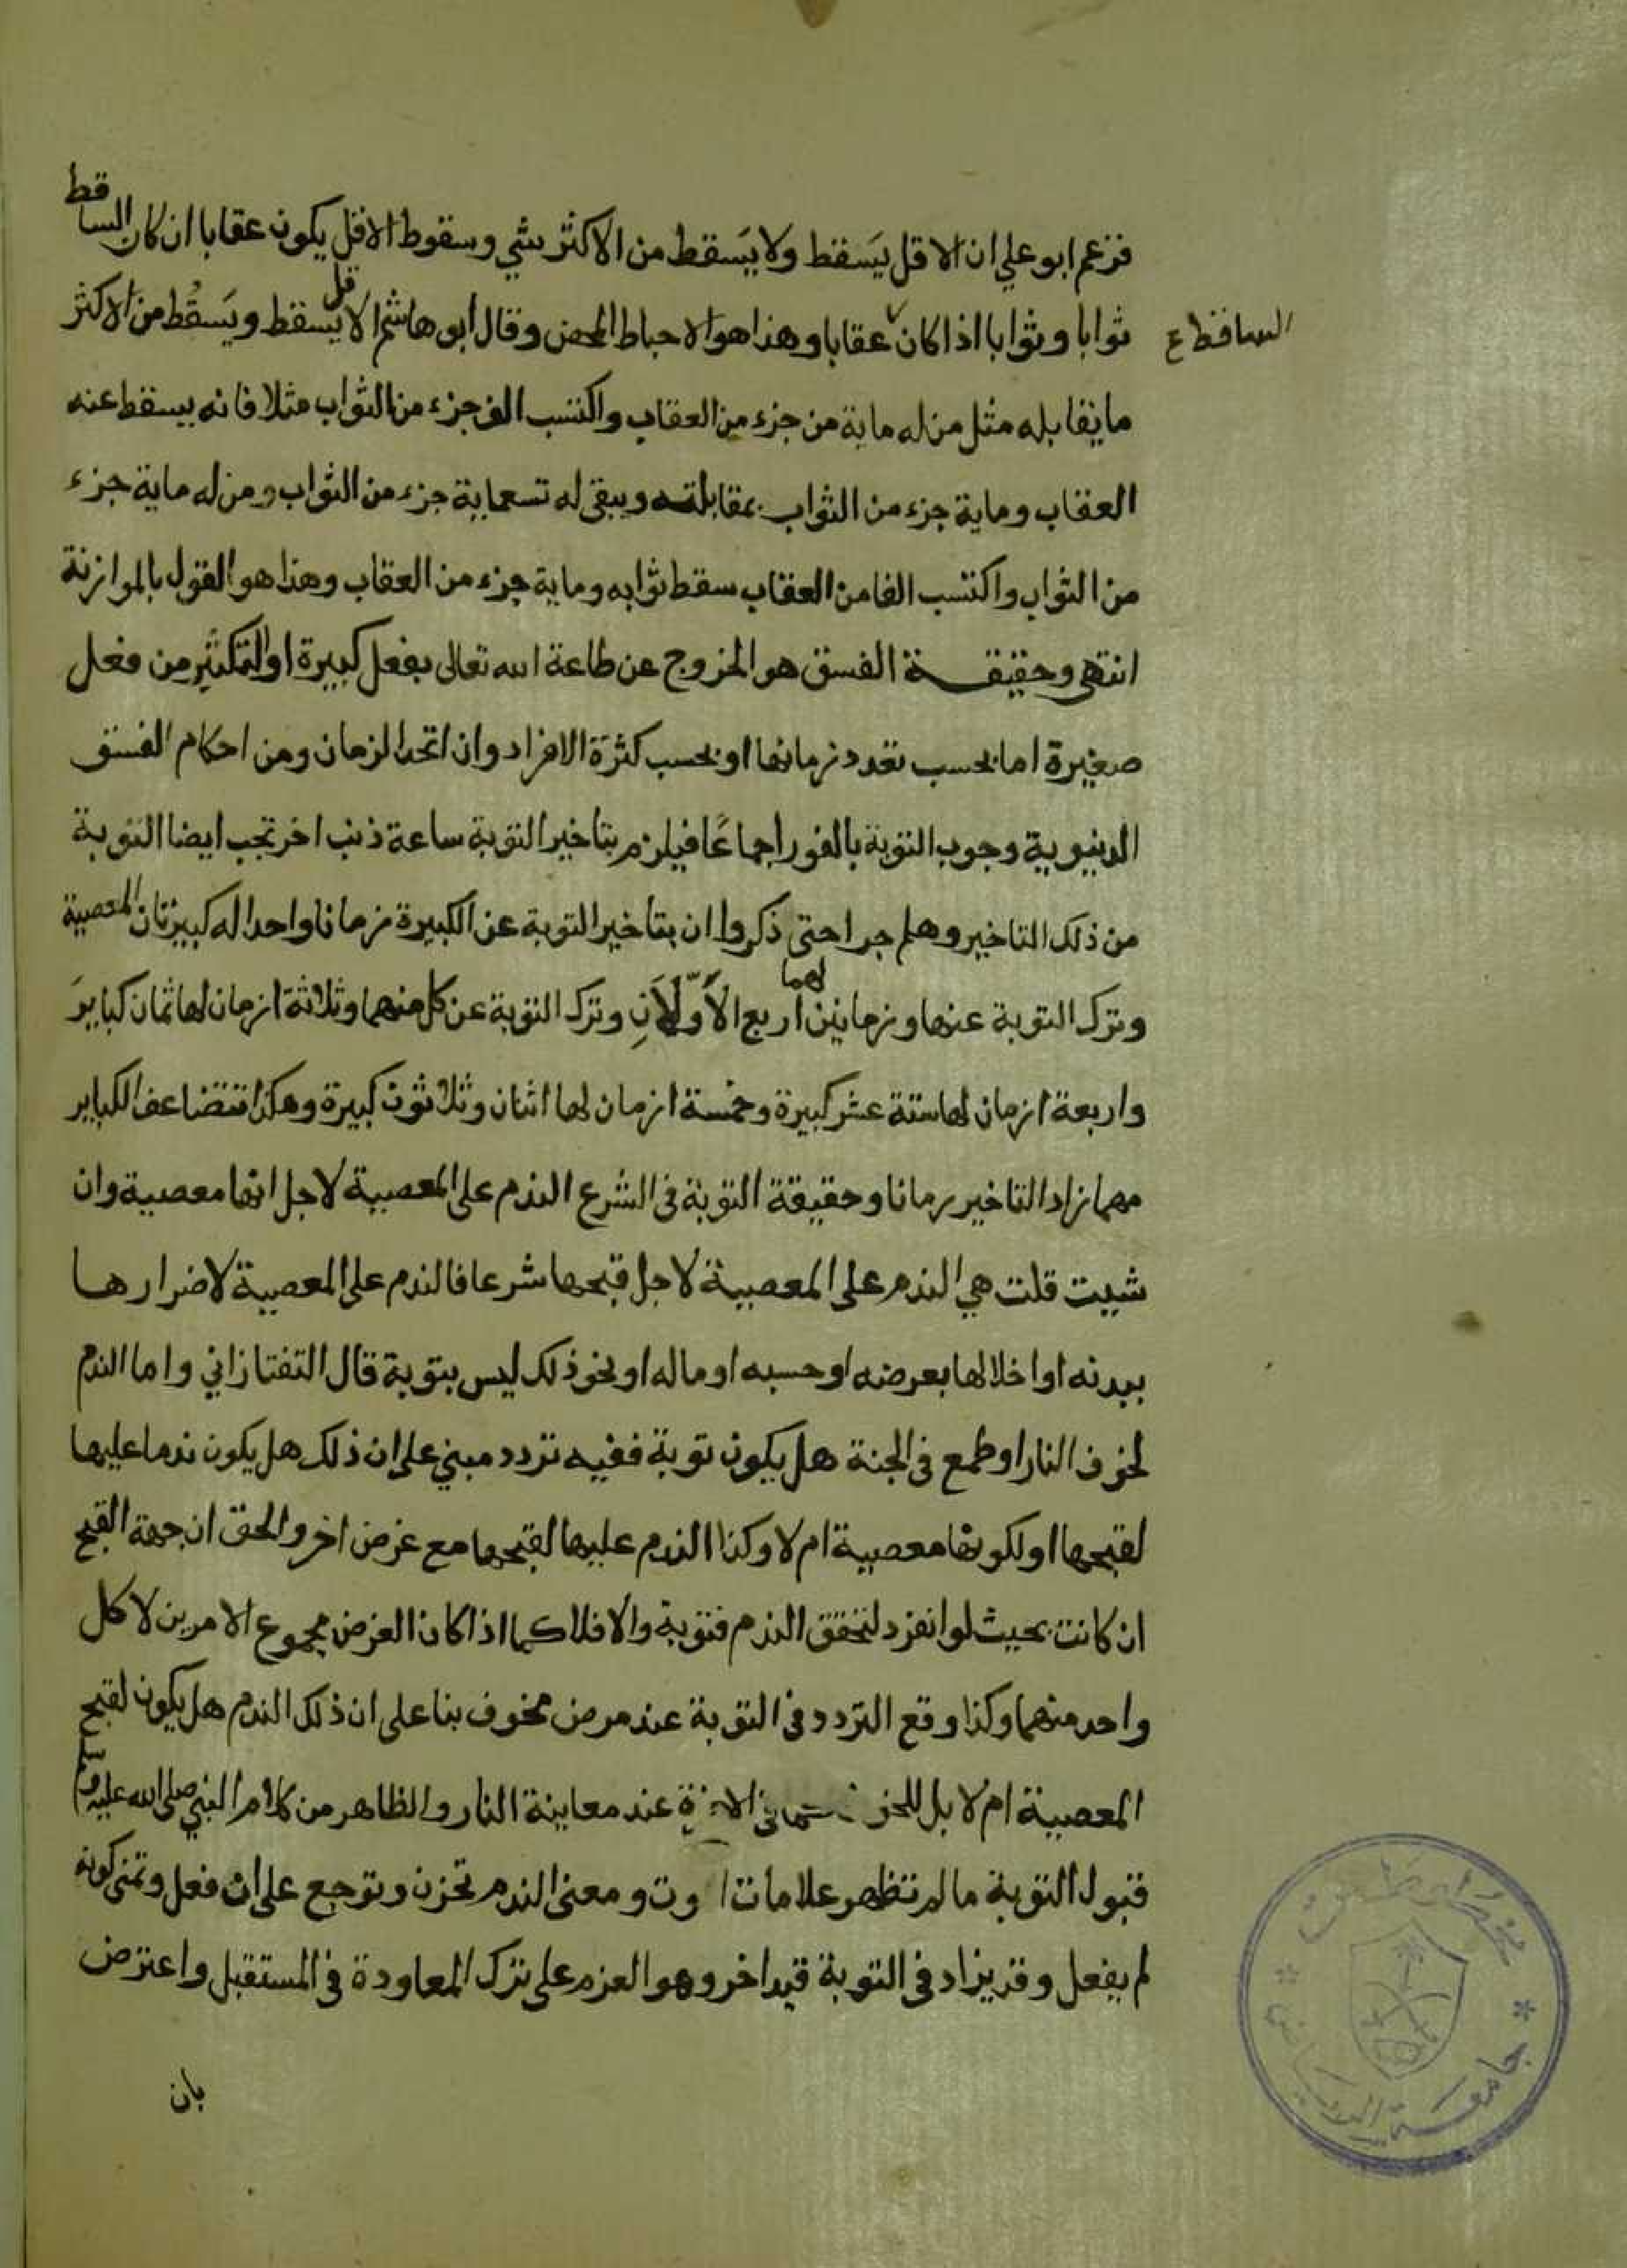 فزعم ابو علي ان الاقل يَسقط ولا يَسقط من الاكثر شي وسقوط الاقل يكون عقابا ان كان الساقط
ثوابا وثوابا اذا كان عقابا وهذا هو الاحباط المحض وقال ابو هاشم الاقل يسقط ويَسقُط من الاكثر
الساقط ع
ما يقابله مثل من له ماية من جزء من العقاب واكتسب الف جزء من الثواب مثلا فانه يسقط عنه
العقاب وماية جزء من الثواب بمقابلته ويبقى له تسعماية جزء من الثواب ومن له ماية جزء
من الثواب واكتسب الفا من العقاب سقط ثوابه وماية جزء من العقاب وهذا هو القول بالموازنة
انتهى وحقيقة الفسق هو الخروج عن طاعة الله تعالى بفعل كبيرة او التكثير من فعل
صغيرة اما بحسب تعدد زمانها او بحسب كثرة الافراد وان اتحد الزمان ومن احكام الفسق
الدنيوية وجوب التوبة بالفور اجماعًا فيلزم بتاخير التوبة ساعة ذنب اخر تجب ايضا التوبة
من ذلك التاخير وهلم جرا حتى ذكروا ان بتاخير التوبة عن الكبيرة زمانا واحدا له كبيرتان المعصية
وترك التوبة عنها وزمانين لهما اربع الأوّلَانِ وترك التوبة عن كل منهما وثلاثة ازمان لها ثمان كبايرَ
واربعة ازمان لها ستة عشر كبيرة وخمسة ازمان لها اثنان وثلاثون كبيرة وهكذا تتضاعف الكباير
مهما زاد التاخير زمانا وحقيقة التوبة في الشرع الندم على المعصية لاجل انها معصية وان
شيت قلت هي الندم على المعصية لاجل قبحها شرعا فالندم على المعصية لاضرارها
ببدنه او اخلالها بعرضه او حسبه او ماله او نحو ذلك ليس بتوبة قال التفتازاني واما الندم
لخوف النار او طمع في الجنة هل يكون توبة ففيه تردد مبني على ان ذلك هل يكون ندما عليها
لقبحها او لكونها معصية ام لا وكذا الندم عليها لقبحها مع غرض اخر والحق ان جهة القبح
ان كانت بحيث لو انفرد لتحقق الندم فتوبة والا فلا كما اذا كان الغرض مجموع الامرين لا كل
واحد منهما وكذا وقع التردد في التوبة عند مرض مخوف بنا على ان ذلك الندم هل يكون لقبح
المعصية ام لا بل للخوف كما في الاخرة عند معاينة النار والظاهر من كلام النبي صلى الله عليه وسلم
قبول التوبة ما لم تظهر علامات الموت ومعنى الندم تحزن وتوجع على ان فعل وتمنى كونه
لم يفعل وقد يزاد في التوبة قيد اخر وهو العزم على ترك المعاودة في المستقبل واعترض
بان
جامعة الرياض